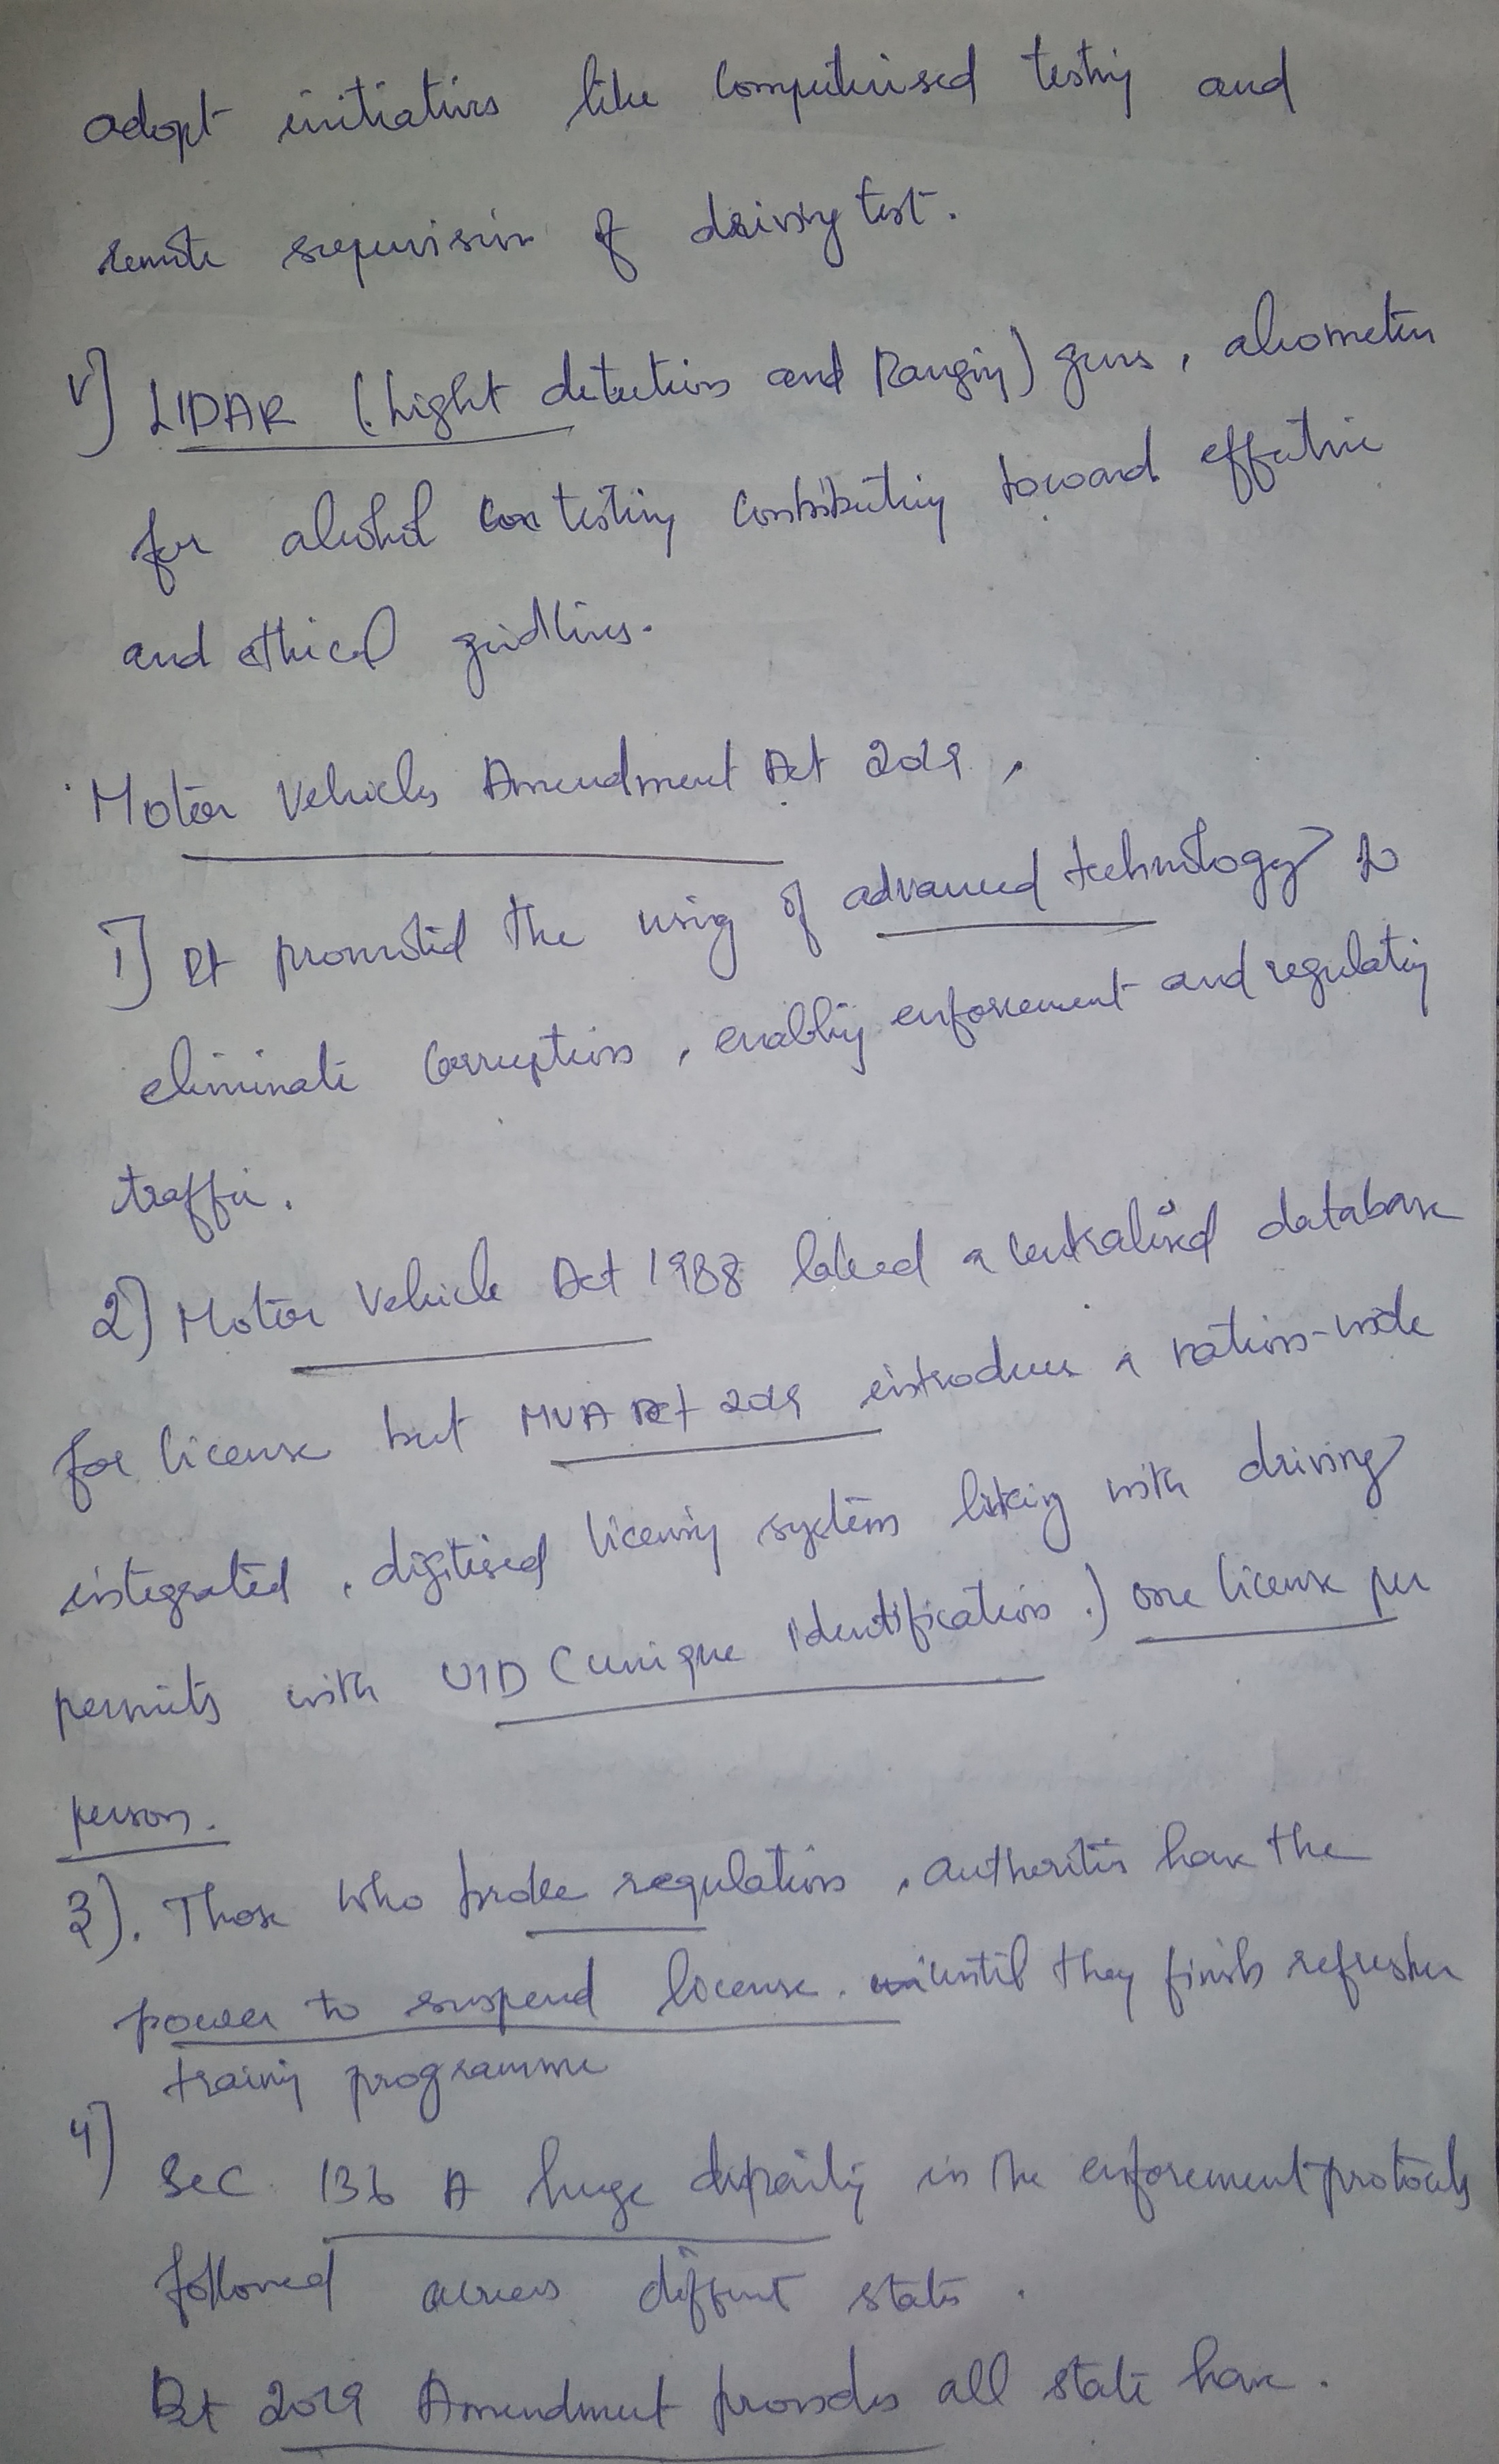 adopt initiatives like Computerised testing and
remote supervision of driving test.
V] LIDAR (Light detection and Ranging) guns, alcometer
for alcohol testing Contributing toward effective
and ethical guidlines.
Motor Vehicles Amendment Act 2019,
1] It promoted the using of advanced technology to
eliminate Corruption, enabling enforcement and regulating
traffic.
2) Motor Vehicle Act 1988 lacked a Centralised database
for license but MVA Act 2019 introduces a nation-wide
integrated, digitised licensing system linking with driving
permits with UID (unique identification.) one license per
person.
3). Those who broke regulation, authorities have the
power to suspend license. until they finish refresher
training programme
4)
Sec. 136 A huge disparity in the enforcement protocols
followed across different states.
But 2019 Amendment provides all state have.